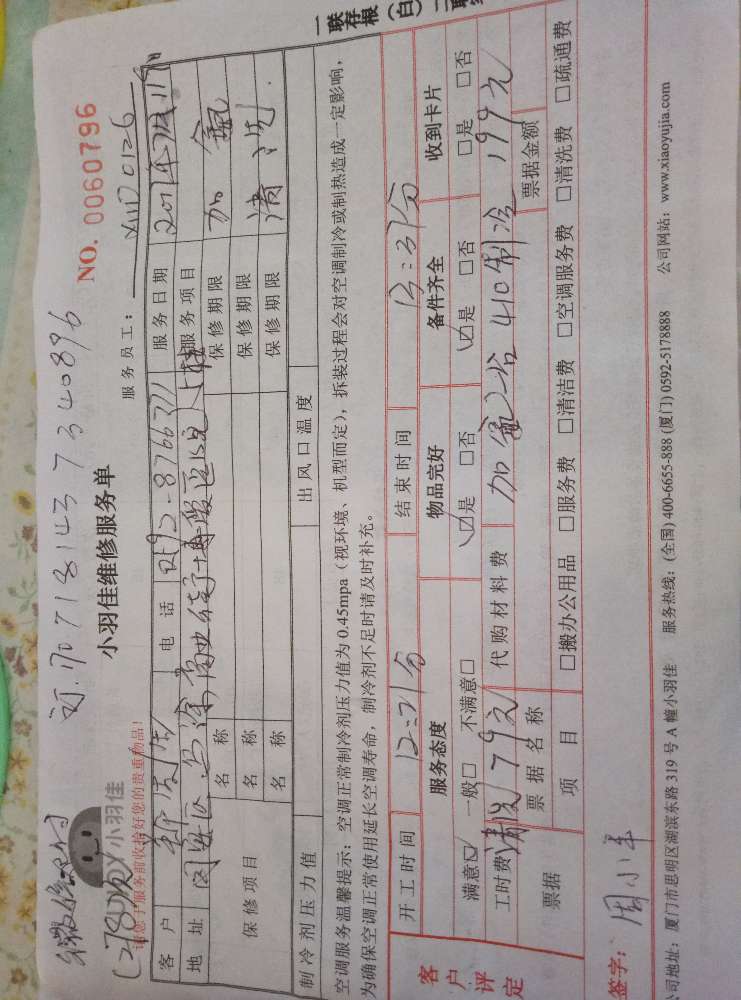 订.170718143734089b
微信支付
(278次)
小羽佳
小羽佳维修服务单
NO. 0060796
请您于服务前收拾好您的贵重物品!
服务员工: XMD0126
客户 电话 0592-8766311 服务日期 2017年7月19日
地址 服务项目
保修项目 名称 保修期限 加氟
名称 保修期限 清洗
名称 保修期限
制冷剂压力值 出风口温度
空调服务温馨提示:空调正常制冷剂压力值为 0.45mpa(视环境、机型而定),拆装过程会对空调制冷或制热造成一定影响,
为确保空调正常使用延长空调寿命,制冷剂不足时请及时补充。
开工时间 12:21分 结束时间 13:31分
客户评定 服务态度 物品完好 备件齐全 收到卡片
满意☑ 一般□ 不满意□ ☑是 □否 ☑是 □否 □是 □否
工时费 清洗79元 代购材料费 加氟 410制冷 199元
票据 票据名称 票据金额
项目 □搬办公用品 □服务费 □清洁费 □空调服务费 □清洗费 □疏通费
签字: 周小羊
公司地址:厦门市思明区湖滨东路 319 号 A 幢小羽佳 服务热线:(全国) 400-6655-888 (厦门) 0592-5178888 公司网站:www.xiaoyujia.com
一联存根(白)